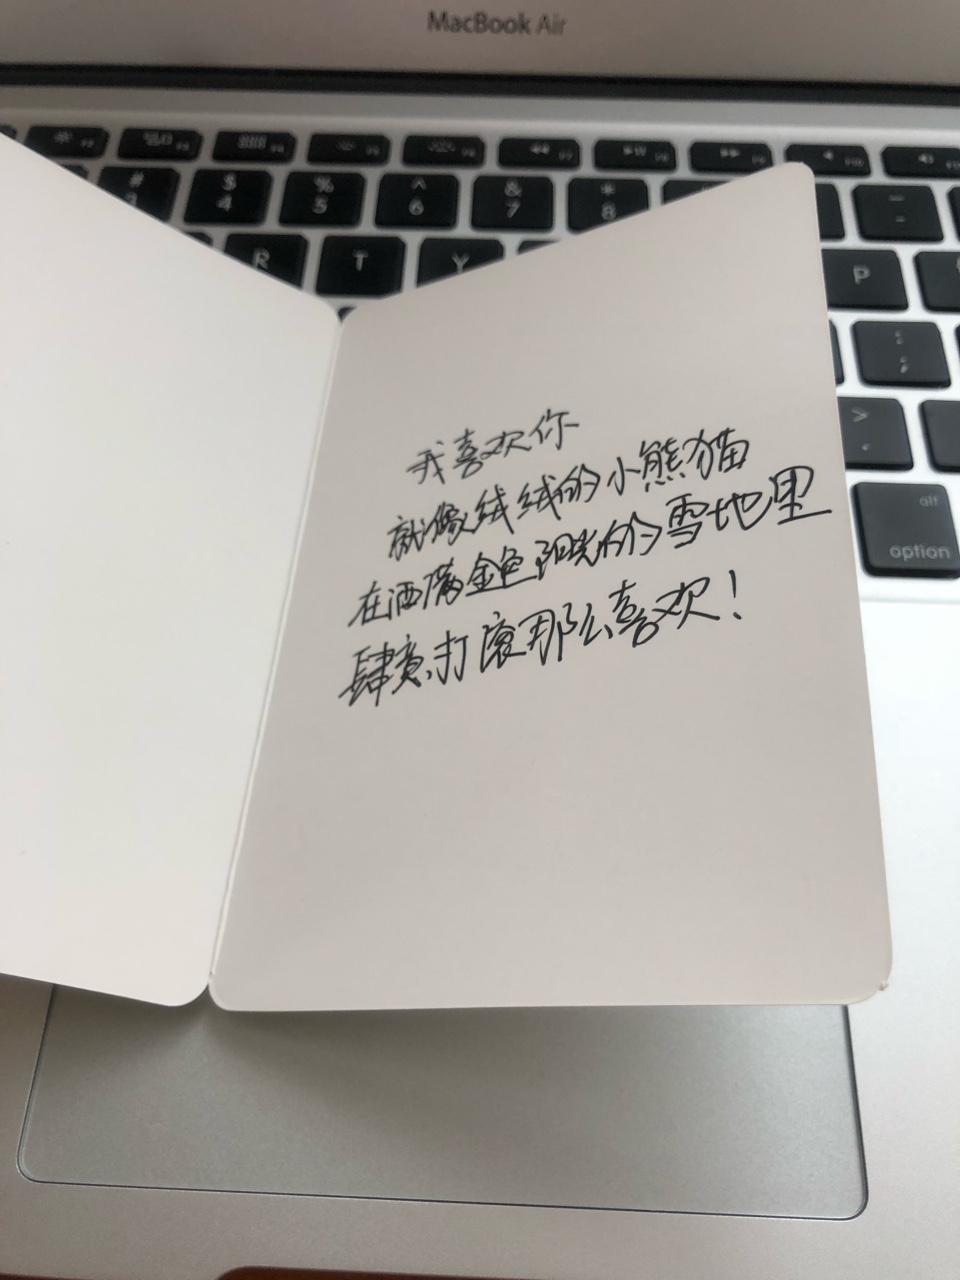 MacBook Air
F2
F3
F4
F5
F6
F7
F8
F9
F10
#
3
$
4
%
5
^
6
&
7
*
8
R
T
Y
P
:
;
>
.
alt
option
我喜欢你
就像绒绒的小熊猫
在洒满金色阳光的雪地里
肆意打滚那么喜欢！